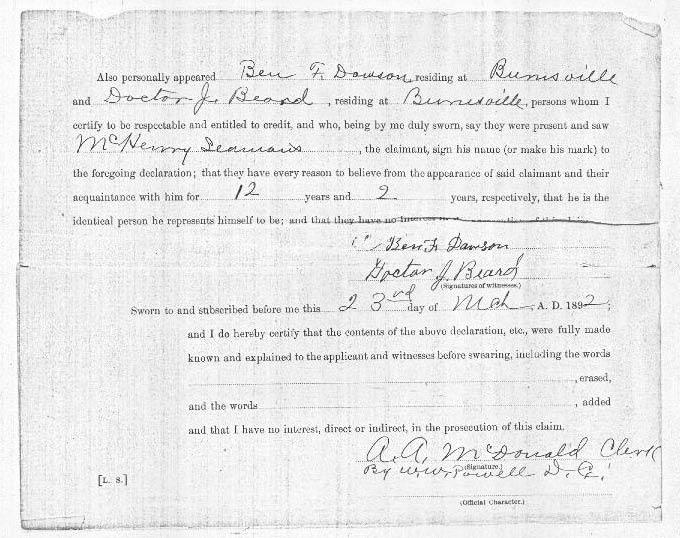 Also personally appeared Ben F. Dawson, residing at Burnsville
and Doctor J. Beard, residing at Burnsville, persons whom I
certify to be respectable and entitled to credit, and who, being by me duly sworn, say they were present and saw
McHenry Seamans, the claimant, sign his name (or make his mark) to
the foregoing declaration; that they have every reason to believe from the appearance of said claimant and their
acquaintance with him for 12 years and 2 years, respectively, that he is the
identical person he represents himself to be; and that they have no interest in
Ben F. Dawson
Doctor J. Beard
(Signatures of witnesses.)
Sworn to and subscribed before me this 23rd day of Mch, A. D. 1892;
and I do hereby certify that the contents of the above declaration, etc., were fully made
known and explained to the applicant and witnesses before swearing, including the words
, erased,
and the words , added
and that I have no interest, direct or indirect, in the prosecution of this claim.
A. A. McDonald Clerk
(Signature.)
By W. W. Powell D. C.
[L. S.]
(Official Character.)